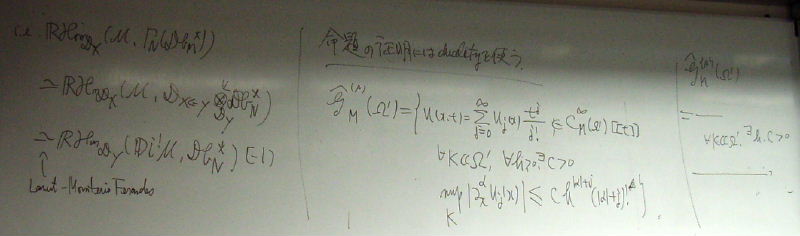 i.e. RHom_{D_X}(M, Γ_N(Db_M^*))
≃ RHom_{D_X}(M, D_{X←Y} ⊗^L_{D_Y} Db_N^*)
≃ RHom_{D_Y}(Di^!M, Db_N^*)[-1]
↑
Laurent-Monteiro Fernandes
命題の証明にはdualityを使う.
Ĝ_M^{(s)}(Ω') = {u(x,t) = Σ_{j=0}^∞ u_j(x) t^j/j! ∈ C_M^∞(Ω')[[t]]
∀K⊂⊂Ω', ∀h>0, ∃C>0
sup_K |∂_x^α u_j(x)| ≤ C h^{|α|+j} (|α|+j)!^s}
Ĝ_M^{(s)}(Ω')
=
∀K⊂⊂Ω', ∃h, C>0